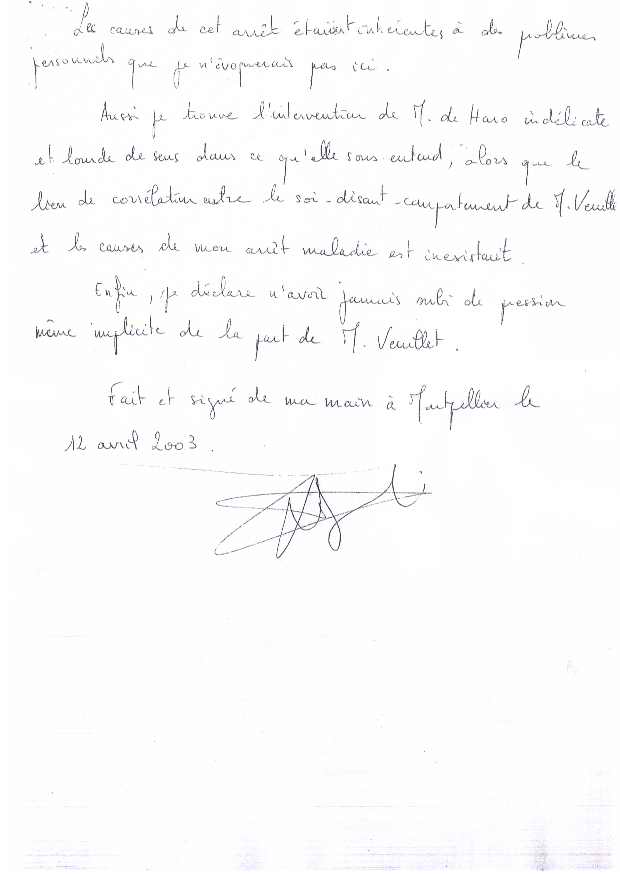 Les causes de cet arrêt étaient inhérentes à des problèmes
personnels que je n'évoquerais pas ici.
Aussi je trouve l'intervention de M. de Haro indélicate
et lourde de sens dans ce qu'elle sous entend, alors que le
lien de corrélation entre le soi-disant-comportement de M. Veuillet
et les causes de mon arrêt maladie est inexistant.
Enfin, je déclare n'avoir jamais subi de pression
même implicite de la part de M. Veuillet.
Fait et signé de ma main à Montpellier le
12 avril 2003.